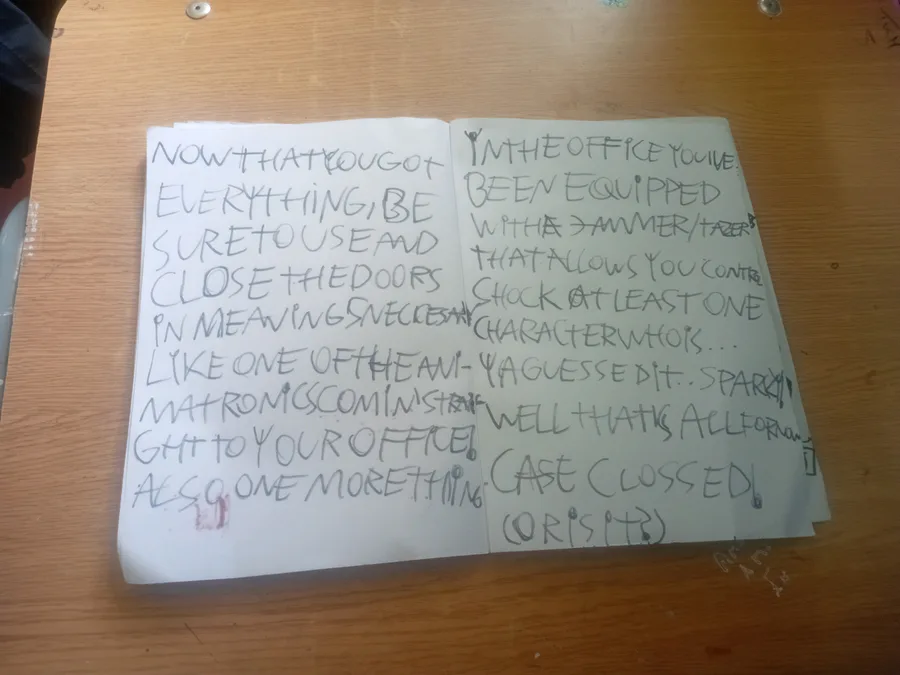 NOW THAT YOU GOT
EVERYTHING, BE
SURE TO USE AND
CLOSE THE DOORS
IN MEANINGS NECCESARY
LIKE ONE OF THE ANI-
MATRONICS COMIN' STRAI-
GHT TO YOUR OFFICE!
ALSO ONE MORE THING.
IN THE OFFICE YOU'VE
BEEN EQUIPPED
WITH A JAMMER/TAZER
THAT ALLOWS YOU
SHOCK AT LEAST ONE
CHARACTER WHO IS...
YA GUESSED IT.. SPARKY!
WELL THAT'S ALL FOR NOW
CASE CLOSSED!
(OR IS IT?)